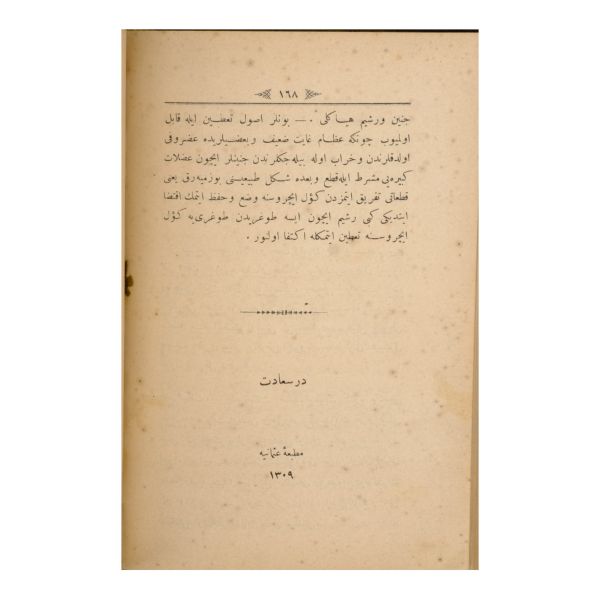 ١٦٨
جنین و رشیم هیاکلی . — بونلر اصول تعطین ایله قابل
اولمیوب چونکه عظام غایت ضعیف و بعضیلریده غضروفی
اولدقلرندن و خراب اوله بیله جکلرندن جنینلر ایچون عضلات
کبیره‌یی مشرط ایله قطع و بعده شکل طبیعیسنی بوزمیه‌رق یعنی
قطعاتی تفریق ایتمزدن کؤل ایچروسنه وضع و حفظ ایتمك اقتضا
ایتدیکی کبی رشیم ایچون ایسه طوغریدن طوغری‌یه کؤل
ایچروسنه تعطین ایتمکله اکتفا اولنور .
درسعادت
مطبعهٔ عثمانیه
١٣٠٩